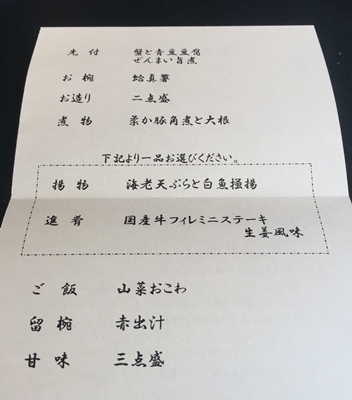 先付 蟹と青豆豆腐
ぜんまい旨煮
お椀 蛤真薯
お造り 二点盛
煮物 柔か豚角煮と大根
下記より一品お選びください。
揚物 海老天ぷらと白魚掻揚
進肴 国産牛フィレミニステーキ
生姜風味
ご飯 山菜おこわ
留椀 赤出汁
甘味 三点盛